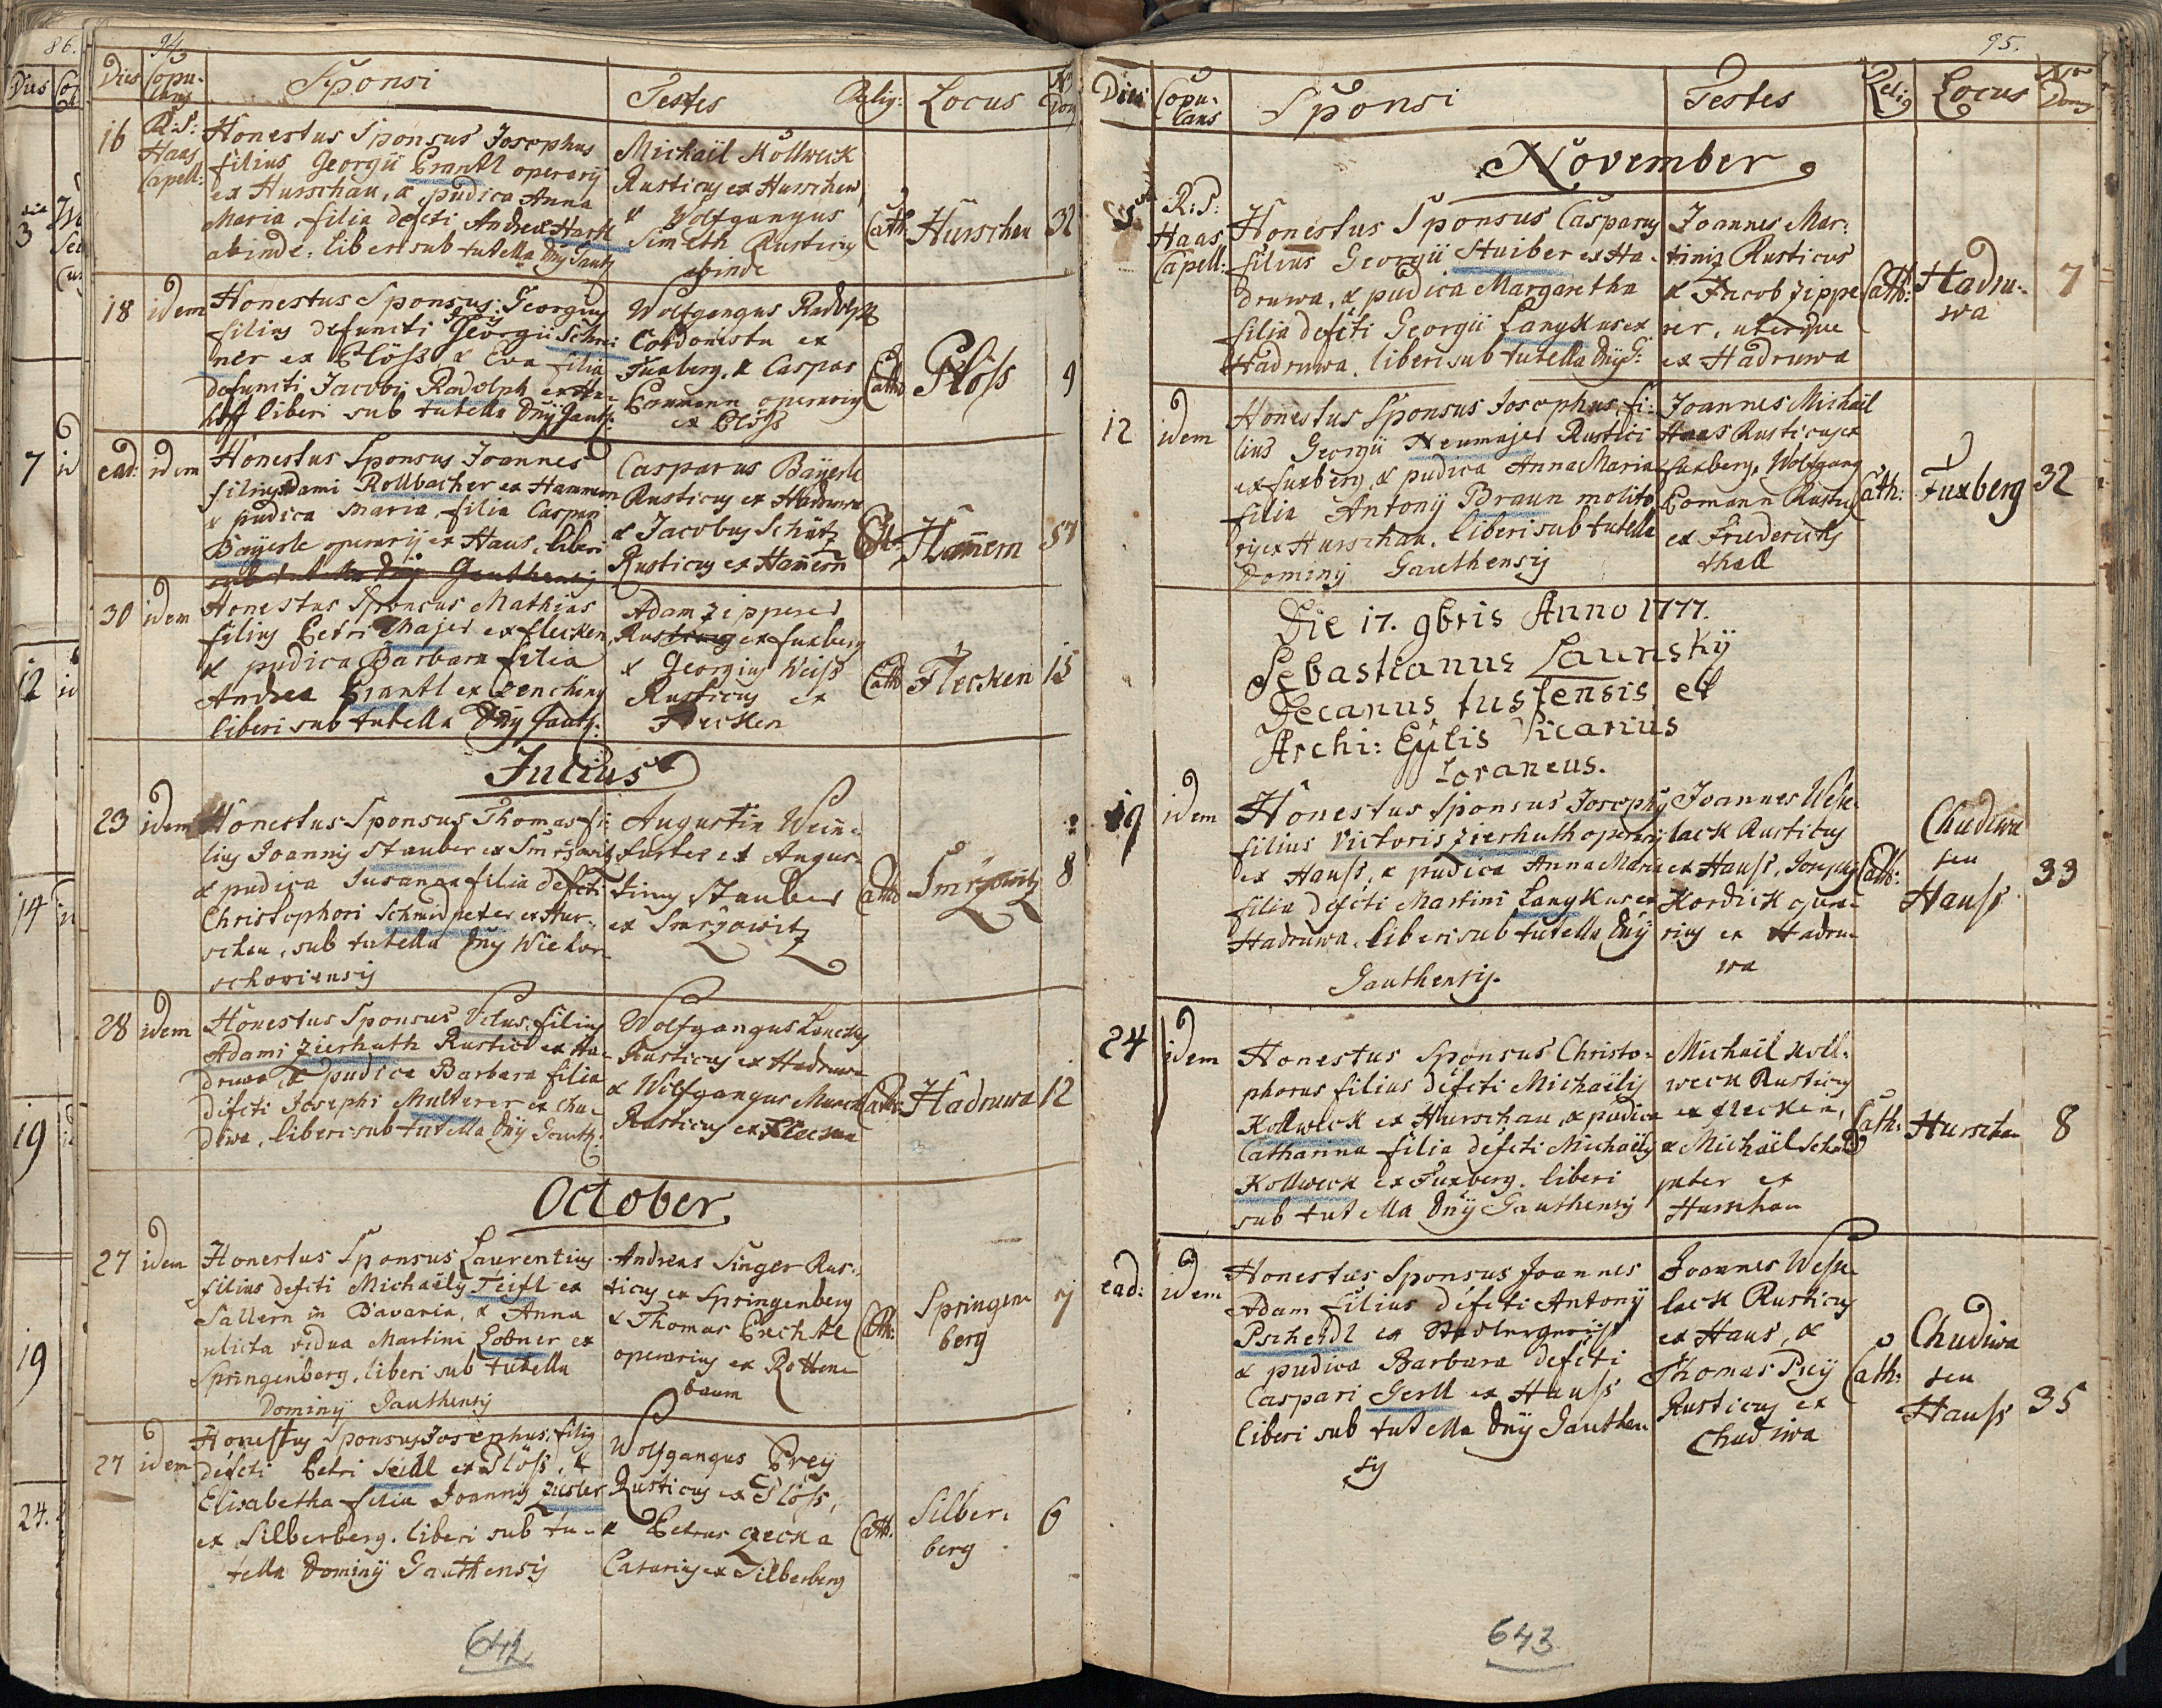 94
Dies Copu-lans Sponsi Testes Relig: Locus Nro Dom
16 R:P: Haas Capell:
Honestus Sponsus Josephus
filius Georgii Brantl operarij
ex Hurschau, & pudica Anna
Maria, filia defcti Andreæ Hartl
abinde. liberi sub tutella Dnÿ Gauth
Michaïl Kollweck
Rusticus ex Hurschau
& Wolfgangus
Simeth Rusticus
abinde
Cath: Hurschau 32
18 idem
Honestus Sponsus Georgius
filius defuncti Georgii Schrei-
ner ex Plöss & Eva filia
defuncti Jacobi Radolph ex
hoff liberi sub tutella Dnÿ Gauth:
Wolfgangus Radolph
Cordonista ex
Fuxberg, & Caspar
operarius
ex Plöss
Cath: Plöss 9
ead: idem
Honestus Sponsus Joannes
filius Adami Rollbacher ex Hammern
& pudica Maria, filia Caspari
Baÿerle operarij ex Haus, liberi
sub tutella Dnÿ Gauthensis
Casparus Baÿerle
Rusticus ex
& Jacobus Schätz
Rusticus ex Ham̄ern
Cat: Ham̄ern 57
30 idem
Honestus Sponsus Mathias
filius Petri Majer ex flecken
& pudica Barbara filia
Andrea Brantl ex
liberi sub tutella Dnÿ Gauth:
Adam Zipperer
Rusticus ex fuxberg
& Georgius Weiss
Rusticus ex
Flecken
Cath: Flecken 15
Julius
23 idem
Honestus Sponsus Thomas fi-
lius Joannis Stauber ex Smrzowitz
& pudica Susanna filia defcti
Christophori Schmidpeter ex Hur-
schau, sub tutella Dnÿ Wiehor-
schoviensis
Augustin Wein-
furter et Augus-
tinus Stauber
ex Smrzowitz
Cath: Smrzowitz 8
28 idem
Honestus Sponsus Vitus, filius
Adami Zierhuth Rustici ex Ha-
druwa, & pudica Barbara filia
difcti Josephi Multerer ex Chu-
diwa, liberi sub tutella Dnÿ Gauth:
Wolfgangus
Rusticus ex Hadruwa
& Wolfgangus
Rusticus ex Flecken
Cath: Hadruwa 12
October.
27 idem
Honestus Sponsus Laurentius
filius defcti Michaëlis Teifl ex
Sallern in Bavaria, & Anna
relicta vidua Martini Lobner ex
Springenberg, liberi sub tutella
Dominÿ Gauthensis
Andreas Singer Rus-
ticus ex Springenberg
& Thomas
operarius ex Rotten-
baum
Cath: Springen-
berg 7
27 idem
Honestus Sponsus Josephus, filius
defcti Petri Seidl ex Plöss, &
Elisabetha filia Joannis
ex Silberberg. liberi sub tu-
tella Dominÿ Gauthensis
Wolfgangus Preÿ
Rusticus ex Plöss,
& Petrus
Casarius ex Silberberg
Cath: Silber-
berg 6
642
95.
Dies Copu-lans Sponsi Testes Relig Locus Nro Dom
November
5 R:P: Haas Capell:
Honestus Sponsus Casparus
filius Georgii Stuiber ex Ha-
druwa, & pudica Margaretha
filia defcti Georgii Langkus ex
Hadruwa. liberi sub tutella Dnÿ G:
Joannes Mar-
tinis Rusticus
& Jacob Zippe
rer, uterque
ex Hadruwa
Cath: Hadru-
wa 7
12 idem
Honestus Sponsus Josephus, fi-
lius Georgii Neumajer Rustici
ex fuxberg, & pudica Anna Maria
filia Antonÿ Braun molito
ris ex Hurschau. liberi sub tutella
Dominÿ Gauthensis
Joannes Michaïl
Haas Rusticus ex
fuxberg, Wolfgang
Rusticus
ex Friederichs
thall
Cath: Fuxberg 32
Die 17. 9bris Anno 1777.
Sebastianus Launskÿ
Decanus tustensis et
Archi: Eplis Vicarius
Foraneus.
19 idem
Honestus Sponsus Josephus
filius Victoris Zierhuth operarij
ex Hauss, & pudica Anna Maria
filia defcti Martini Langkus ex
Hadruwa. liberi sub tutella Dnÿ
Gauthensis.
Joannes Wese-
lack Rusticus
ex Hauss, Josephus
Kordick opera-
rius ex Hadru-
wa
Cath: Chudiwa
seu
Hauss 33
24 idem
Honestus Sponsus Christo-
phorus filius défcti Michaëlis
Kollweck ex Hurschau, & pudica
Catharina filia defcti Michaëlis
Kollweck ex Fuxberg. liberi
sub tutella Dnÿ Gauthensis
Michaïl Koll-
weck Rusticus
ex flecken,
& Michaël Schmid
peter ex
Hurschau
Cath: Hurschau 8
ead: idem
Honestus Sponsus Joannes
Adam filius défcti Antonÿ
Pscheidl ex
& pudica Barbara defcti
Caspari Gerll ex Hauss
liberi sub tutella Dnÿ Gauthen
sis
Joannes Wese-
lack Rusticus
ex Haus, &
Thomas Preÿ
Rusticus ex
Chudiwa
Cath: Chudiwa
seu
Hauss 35
643